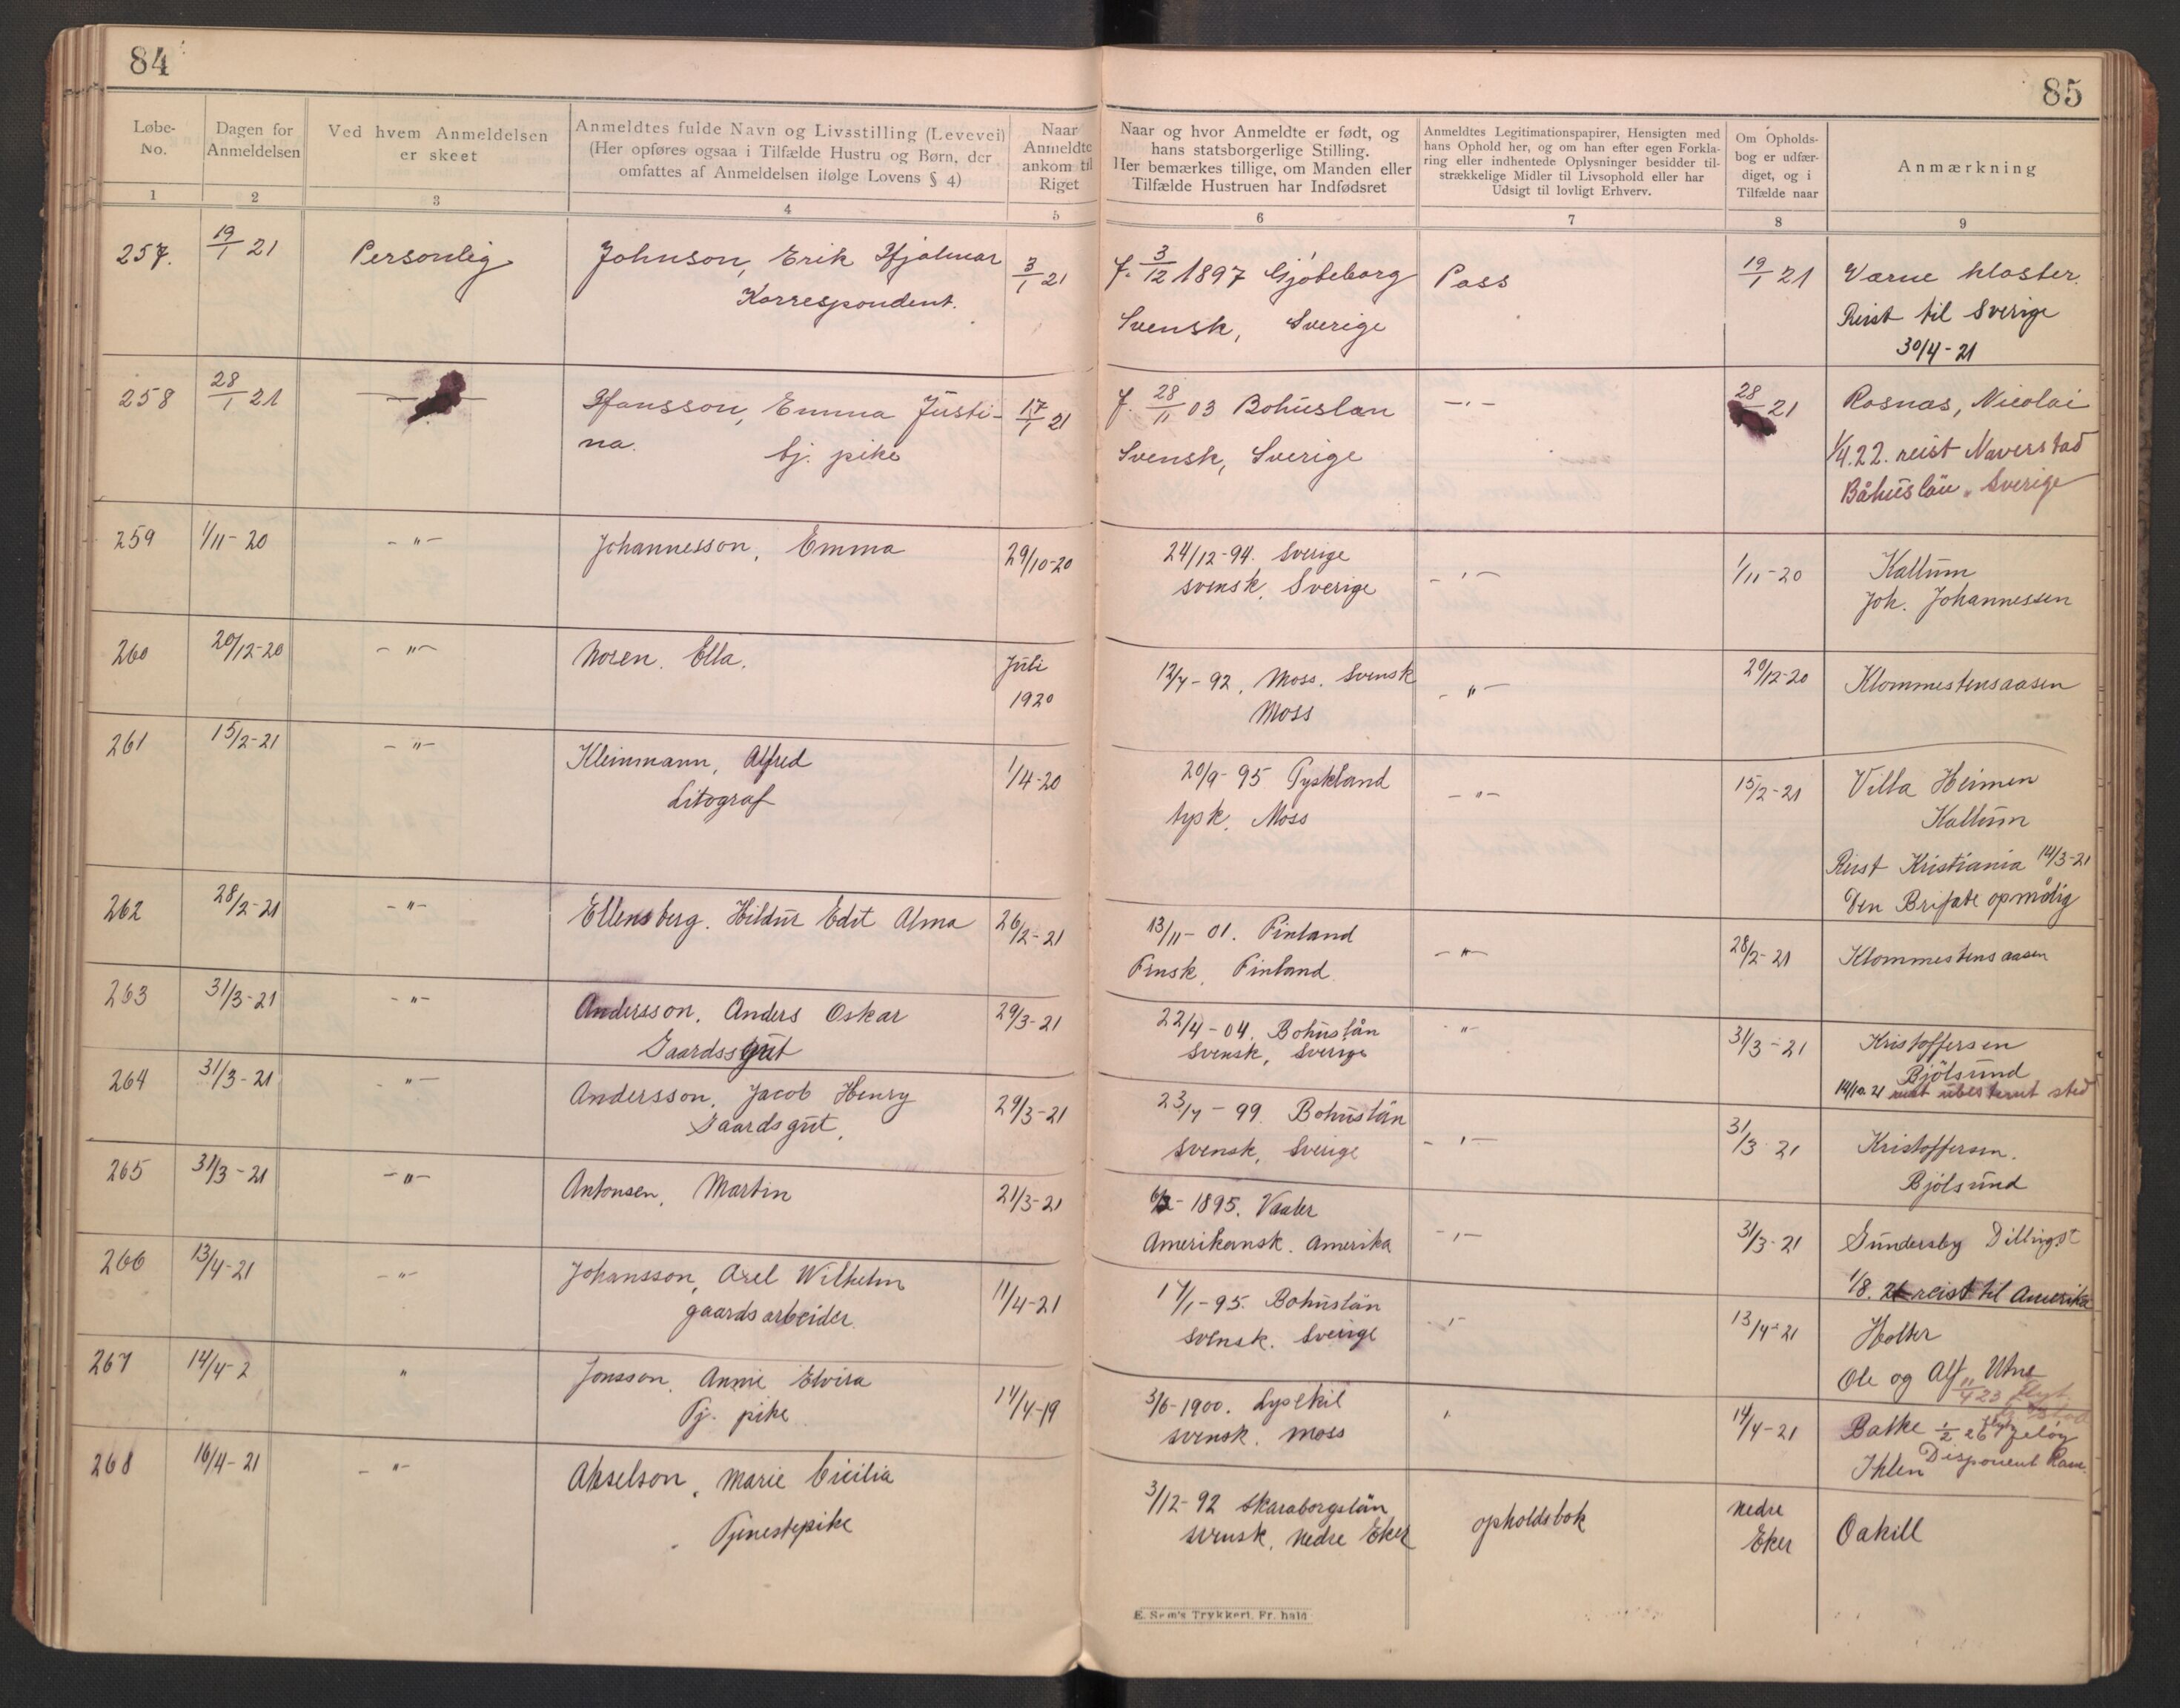 84
85
Løbe-No.
Dagen for Anmeldelsen
Ved hvem Anmeldelsen er skeet
Anmeldtes fulde Navn og Livsstilling (Levevei)
(Her opføres ogsaa i Tilfælde Hustru og Børn, der
omfattes af Anmeldelsen ifølge Lovens § 4)
Naar Anmeldte ankom til Riget
Naar og hvor Anmeldte er født, og
hans statsborgerlige Stilling.
Her bemærkes tillige, om Manden eller
Tilfælde Hustruen har Indfødsret
Anmeldtes Legitimationspapirer, Hensigten med
hans Ophold her, og om han efter egen Forkla-
ring eller indhentede Oplysninger besidder til-
strækkelige Midler til Livsophold eller har
Udsigt til lovligt Erhverv.
Om Opholds-
bog er udfær-
diget, og i
Tilfælde naar
Anmærkning
1 2 3 4 5 6 7 8 9
257. 19/1 21 Personlig Johnson, Erik Hjalmar 3/1 21 f. 3/12 1897 Gjøteborg Pass 19/1 21 Varne kloster.
Korrespondent. Svensk, Sverige Reist til Sverige
30/4-21
258 28/1 21 Hansson, Emma Justi- 17/1 21 f. 28/11 03 Bohuslan -"- 28 21 Rosnas, Nicolai
na. tj. pike Svensk, Sverige 1/4.22. reist Naverstad
Båhuslän. Sverige
259 1/11-20 -"- Johannesson, Emma 29/10-20 24/12-94. Sverige -"- 1/11-20 Kallum
svensk. Sverige Joh. Johannessen
260 20/12-20 -"- Noren. Ella. Juli 1920 12/7-92, Moss. Svensk -"- 20/12-20 Klommestensaasen
Moss
261 15/2-21 -"- Kleinmann, Alfred 1/4-20 20/9-95 Tyskland -"- 15/2-21 Villa Heimen
Litograf tysk. Moss Kallum
Reist Kristiania 14/3-21
262 28/2-21 -"- Ellensberg. Hildur Edit Alma 26/2-21 13/11-01. Finland -"- 28/2-21 Klommestensaasen
Finsk. Finland.
263 31/3-21 -"- Andersson, Anders Oskar 29/3-21 22/4-04. Bohuslän -"- 31/3-21 Kristoffersen
Gaardsgut Svensk, Sverige Bjölsund
14/10 21 reist ubestemt sted
264 31/3-21 -"- Andersson, Jacob Henry 29/3-21 23/7-99. Bohuslän -"- 31/3 21 Kristoffersen.
Gaardsgut, svensk, Sverige Bjölsund
265 31/3-21 -"- Antonsen, Martin 21/3-21 1895. Vaaler -"- 31/3-21 Gundersby Dillingst
Amerikansk. Amerika 1/8. 21 reist til Amerika
266 13/4-21 -"- Johansson, Axel Wilhelm 11/4-21 17/1-95. Bohuslän -"- 13/4-21 Holter
gaardsarbeider. svensk. Sverige Ole og Alf Utne
267 14/4-2 " Jonsson, Annie Elvira 14/4-19 3/6-1900. Lysekil " 14/4-21 Bakke 1/2 26 flyt Jeløy
Tj. pike svensk. Moss Ihlen Disponent
268 16/4-21 -"- Akselson, Marie Cicilia 3/12-92 Skaraborgslän opholdsbok Nedre Eker Oakill
Tjenestepike svensk. Nedre Eker
E. Sem's Trykkeri, Fr. hald